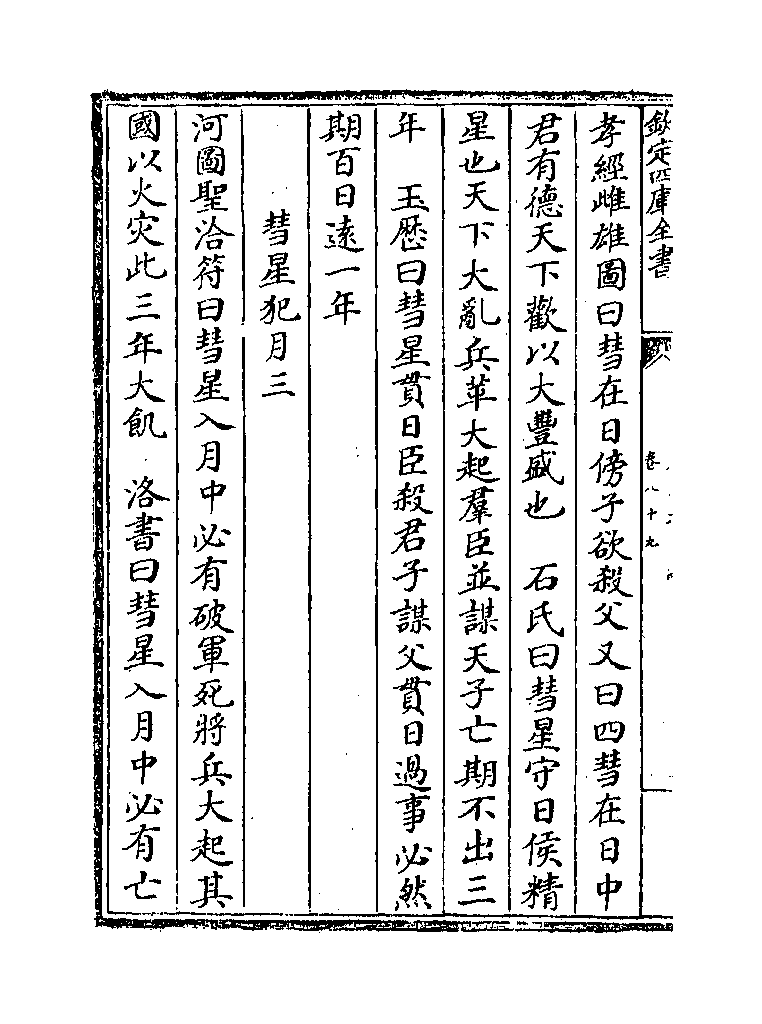 欽定四庫全書
卷八十九
孝經雌雄圖曰彗在日傍子欲殺父又曰四彗在日中
君有德天下歡以大豐盛也　石氏曰彗星守日侯精
星也天下大亂兵革大起羣臣並謀天子亡期不出三
年　玉歷曰彗星貫日臣殺君子謀父貫日過事必然
期百日遠一年
彗星犯月三
河圖聖洽符曰彗星入月中必有破軍死將兵大起其
國以火灾此三年大飢　洛書曰彗星入月中必有亡